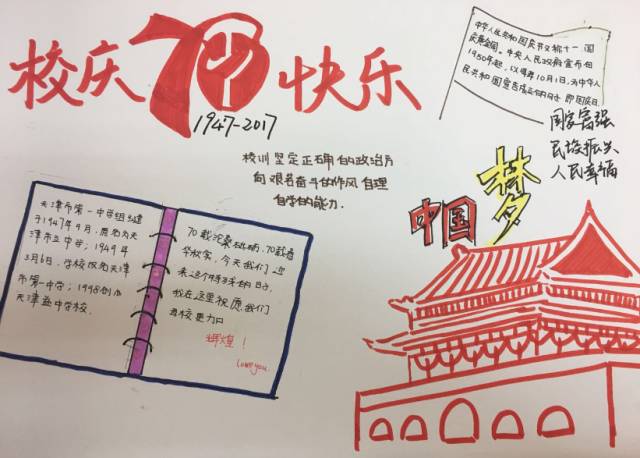 校庆70快乐
1947-2017
中华人民共和国国庆节又称十一、国
庆黄金周。中央人民政府宣布自
1950年起,以每年10月1日,为中华人
民共和国宣告成立的日子,即国庆日
国家富强
民族振兴
人民幸福
校训坚定正确的政治方
向艰苦奋斗的作风自理
自学的能力.
中国梦
天津市第一中学组建
于1947年9月,原名为天
津市立中学;1949年
3月6日,学校改名天津
市第一中学;1998创办
天津益中学校.
70载沧桑砥砺,70载春
华秋实,今天我们迎
来这个特殊的日子.
我在这里祝愿我们
母校更加
辉煌!
Love you